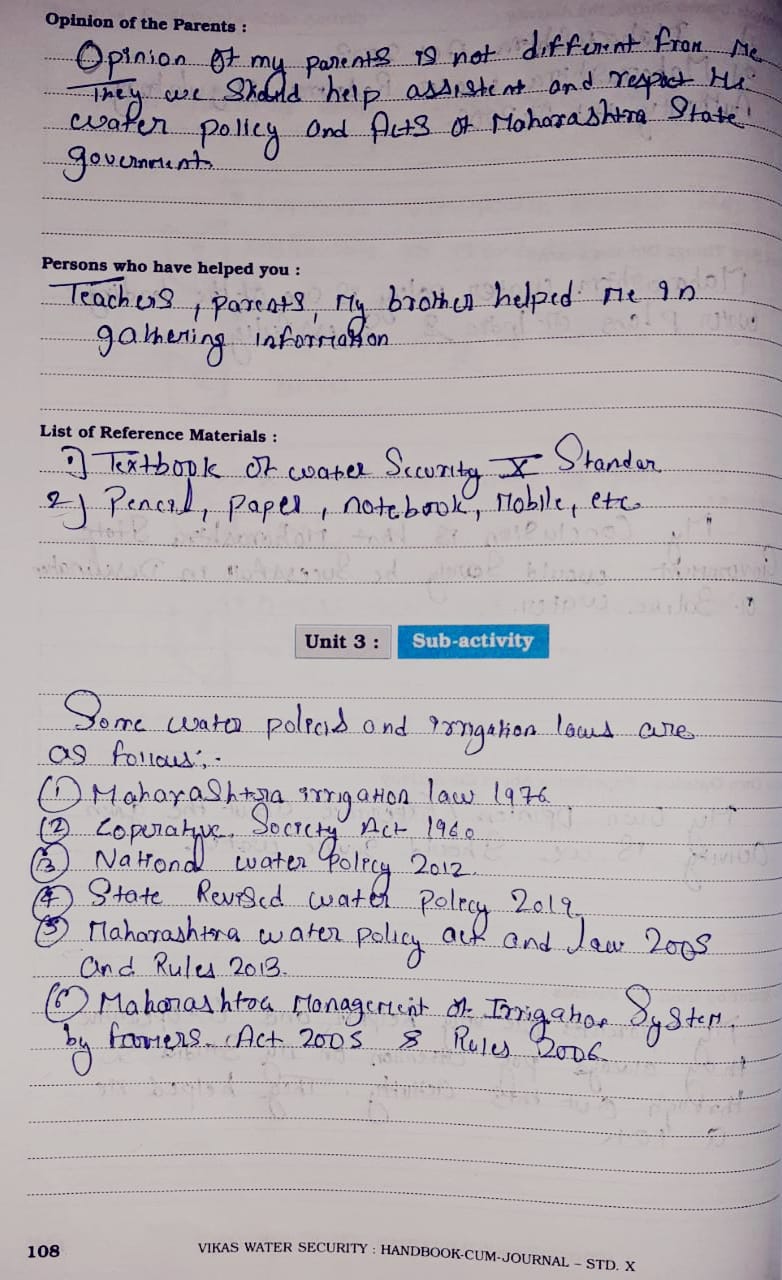 Opinion of the Parents :
Opinion of my parents is not different from me
They we should help assistent and respect the
water policy and Acts of Maharashtra State
government.
Persons who have helped you :
Teachers, parents, My brother helped me in
gathering information
List of Reference Materials :
1) Textbook of water Security X Standar
2) Pencil, paper, notebook, Mobile, etc.
Unit 3 : Sub-activity
Some water policis and irrigation laws are
as follows:-
(1) Maharashtra irrigation law 1976
(2) Coperative Society Act 1960
(3) National water Policy 2012.
(4) State Revised water policy 2019
(5) Maharashtra water policy act and law 2005
and Rules 2013.
(6) Maharashtra Management of Irrigation System
by farmers. Act 2005 & Rules 2006.
108 VIKAS WATER SECURITY : HANDBOOK-CUM-JOURNAL – STD. X